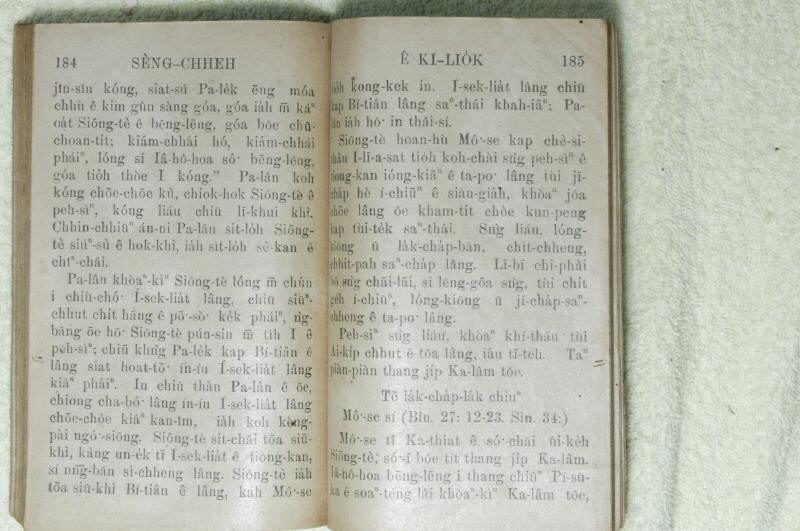 184 SÈNG–CHHEH
jīn-sîn kóng, siat-sú Pa-le̍k ēng móa
chhù ê kim gûn sàng góa, góa ia̍h m̄ káⁿ
oát Siōng-tè ê bēng-lēng, góa bôe chū-
choan-tit; kiám-chhái hó, kiám-chhái
pháiⁿ, lóng sī Iâ-hô-hoa só͘ bēng-lēng.
góa tio̍h thòe I kóng.” Pa-lân koh
kóng chōe-chōe kù, chiok-hok Siōng-tè ê
peh-sìⁿ, kóng liáu chiū lī-khui khì.
Chhin-chhiūⁿ án-ni Pa-lân sit-lo̍h Siōng-
tè siúⁿ-sù ê hok-khì, ia̍h sit-lo̍h sè-kan ê
chîⁿ-châi.
Pa-lân khòaⁿ-kìⁿ Siōng-tè lóng m̄ chún
i chiù-chó͘ Í-sek-lia̍t lâng, chiū siūⁿ-
chhut chi̍t hāng ê pō͘-sò͘ ke̍k pháiⁿ, ǹg-
bāng ōe hō͘ Siōng-tè pún-sin m̄ tih I ê
peh-sìⁿ; chiū khǹg Pa-le̍k kap Bí-tiân ê
lâng siat hoat-tō͘ ín-iú Í-sek-lia̍t lâng
kiâⁿ pháiⁿ. In chiū thàn Pa-lân ê ōe,
chiong cha-bó͘ lâng ín-iú Í-sek-lia̍t lâng
chōe-chōe kiâⁿ kan-îm, ia̍h koh kèng-
pài ngó͘-siōng. Siōng-tè sit-chāi tōa siū-
khì, kàng un-e̍k tī Í-sek-lia̍t ê tiong-kan,
sí nn̄g-bān sì-chheng lâng. Siōng-tè ia̍h
tōa siū-khì Bí-tiân ê lâng, kah Mô͘-se
Ê KÌ–LIO̍K 185
tio̍h kong-kek in. Í-sek-lia̍t lâng chiū
kap Bí-tiân lâng saⁿ-thâi khah-iâⁿ; Pa-
lân ia̍h hō͘ in thâi-sí.
Siōng-tè hoan-hù Mô͘-se kap chè-si-
thâu Í-lī-a-sat tio̍h koh-chài sǹg peh-sìⁿ ê
tiong-kan ióng-kiāⁿ ê ta-po͘ lâng tùi jī-
cha̍p hè í-chiūⁿ ê siàu-gia̍h, khòaⁿ jōa
chōe lâng ōe kham-tit chòe kun-peng
kap tùi-te̍k saⁿ-thâi. Sǹg liáu, lóng-
kiōng ū la̍k-cha̍p-bān, chi̍t-chheng,
chhit-pah saⁿ-cha̍p lâng. Lī-bī chi-phài
bô sǹg chāi-lāi, sī lēng-gōa sǹg, tùi chi̍t
ge̍h í-chiūⁿ, lóng-kiōng ū jī-cha̍p-saⁿ-
chheng ê ta-po͘ lâng.
Peh-sìⁿ sǹg liáu, khòaⁿ khí-thâu tùi
Ai-ki̍p chhut ê tōa lâng, iáu tī-teh. Taⁿ
piàn-piàn thang ji̍p Ka-lâm tōe.
Tē la̍k-cha̍p-la̍k chiuⁿ
Mô͘-se sí (Bîn. 27: 12-23. Sin. 34:)
Mô͘-se tī Ka-thiat ê só͘-chāi ûi-kéh
Siōng-tè; só͘-í bôe tit thang ji̍p Ka-lâm.
Iâ-hô-hoa bēng-lēng i thang chiūⁿ Pí-sū-
ka ê soaⁿ-téng lâi khòaⁿ-kìⁿ Ka-lâm tōe,